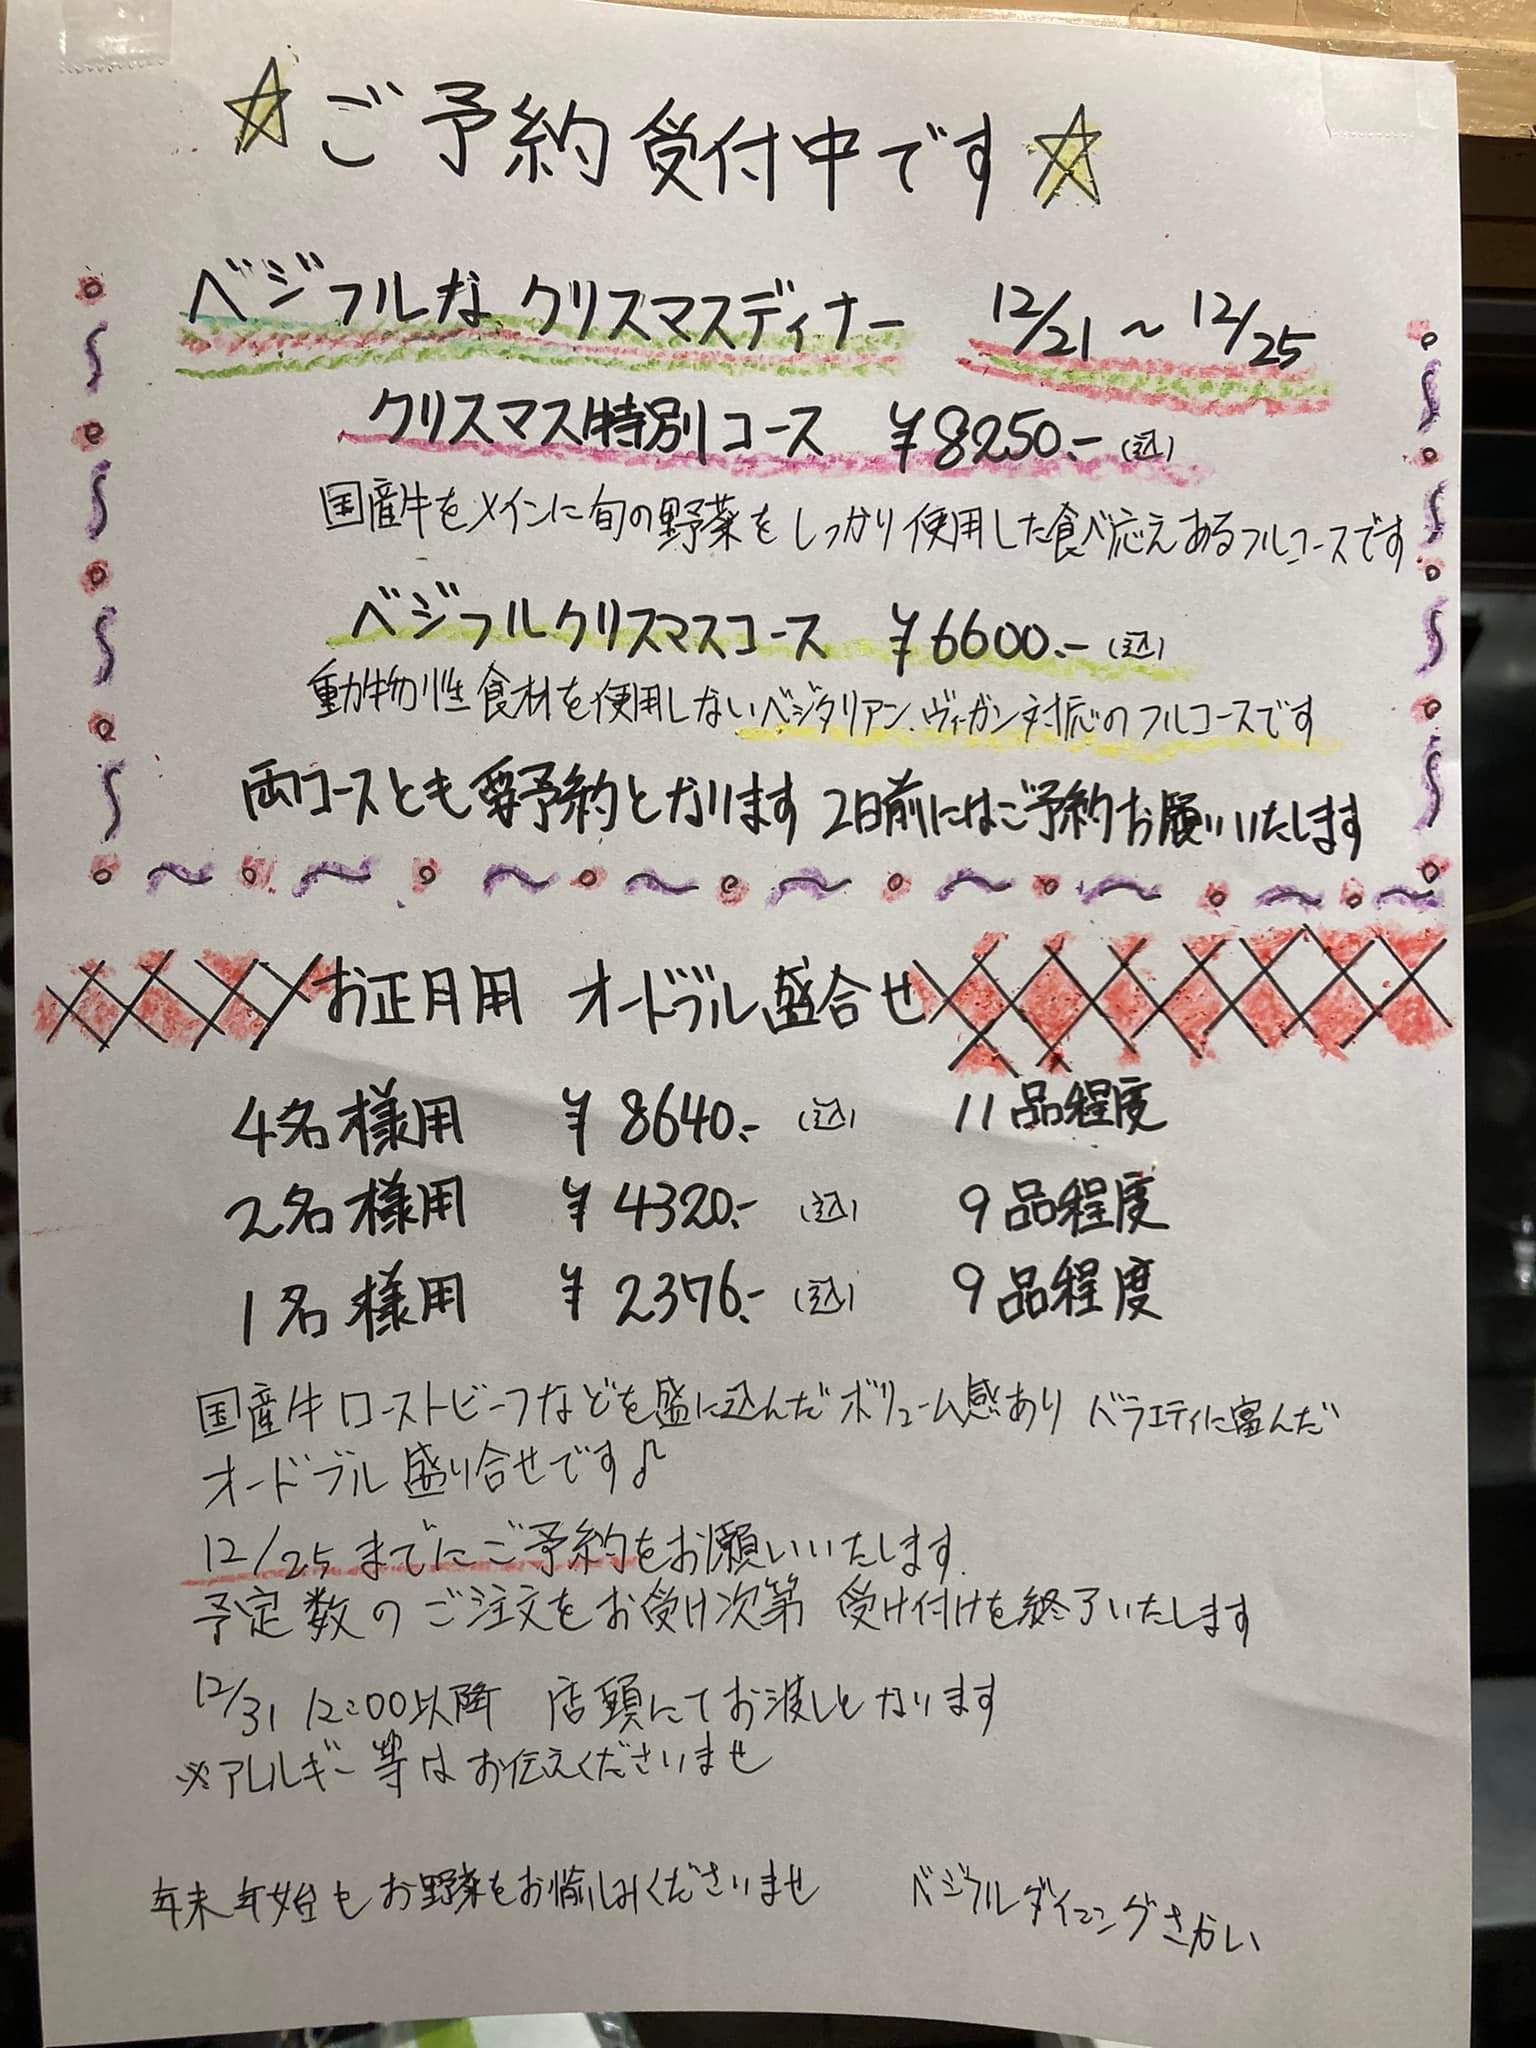 ☆ご予約受付中です☆
ベジフルなクリスマスディナー 12/21～12/25
クリスマス特別コース ￥8250.-(込)
国産牛をメインに旬の野菜をしっかり使用した食べ応えあるフルコースです
ベジフルクリスマスコース ￥6600.-(込)
動物性食材を使用しないベジタリアン、ヴィーガン対応のフルコースです
両コースとも要予約となります 2日前にはご予約お願いいたします
お正月用 オードブル盛合せ
4名様用 ￥8640.-(込) 11品程度
2名様用 ￥4320.-(込) 9品程度
1名様用 ￥2376.-(込) 9品程度
国産牛ローストビーフなどを盛に込んだボリューム感あり バラエティに富んだ
オードブル盛り合せです♪
12/25までにご予約をお願いいたします.
予定数のご注文をお受け次第 受け付けを終了いたします
12/31 12:00以降 店頭にてお渡しとなります
※アレルギー等はお伝えくださいませ
年末年始もお野菜をお愉しみくださいませ ベジフルダイニングさかい